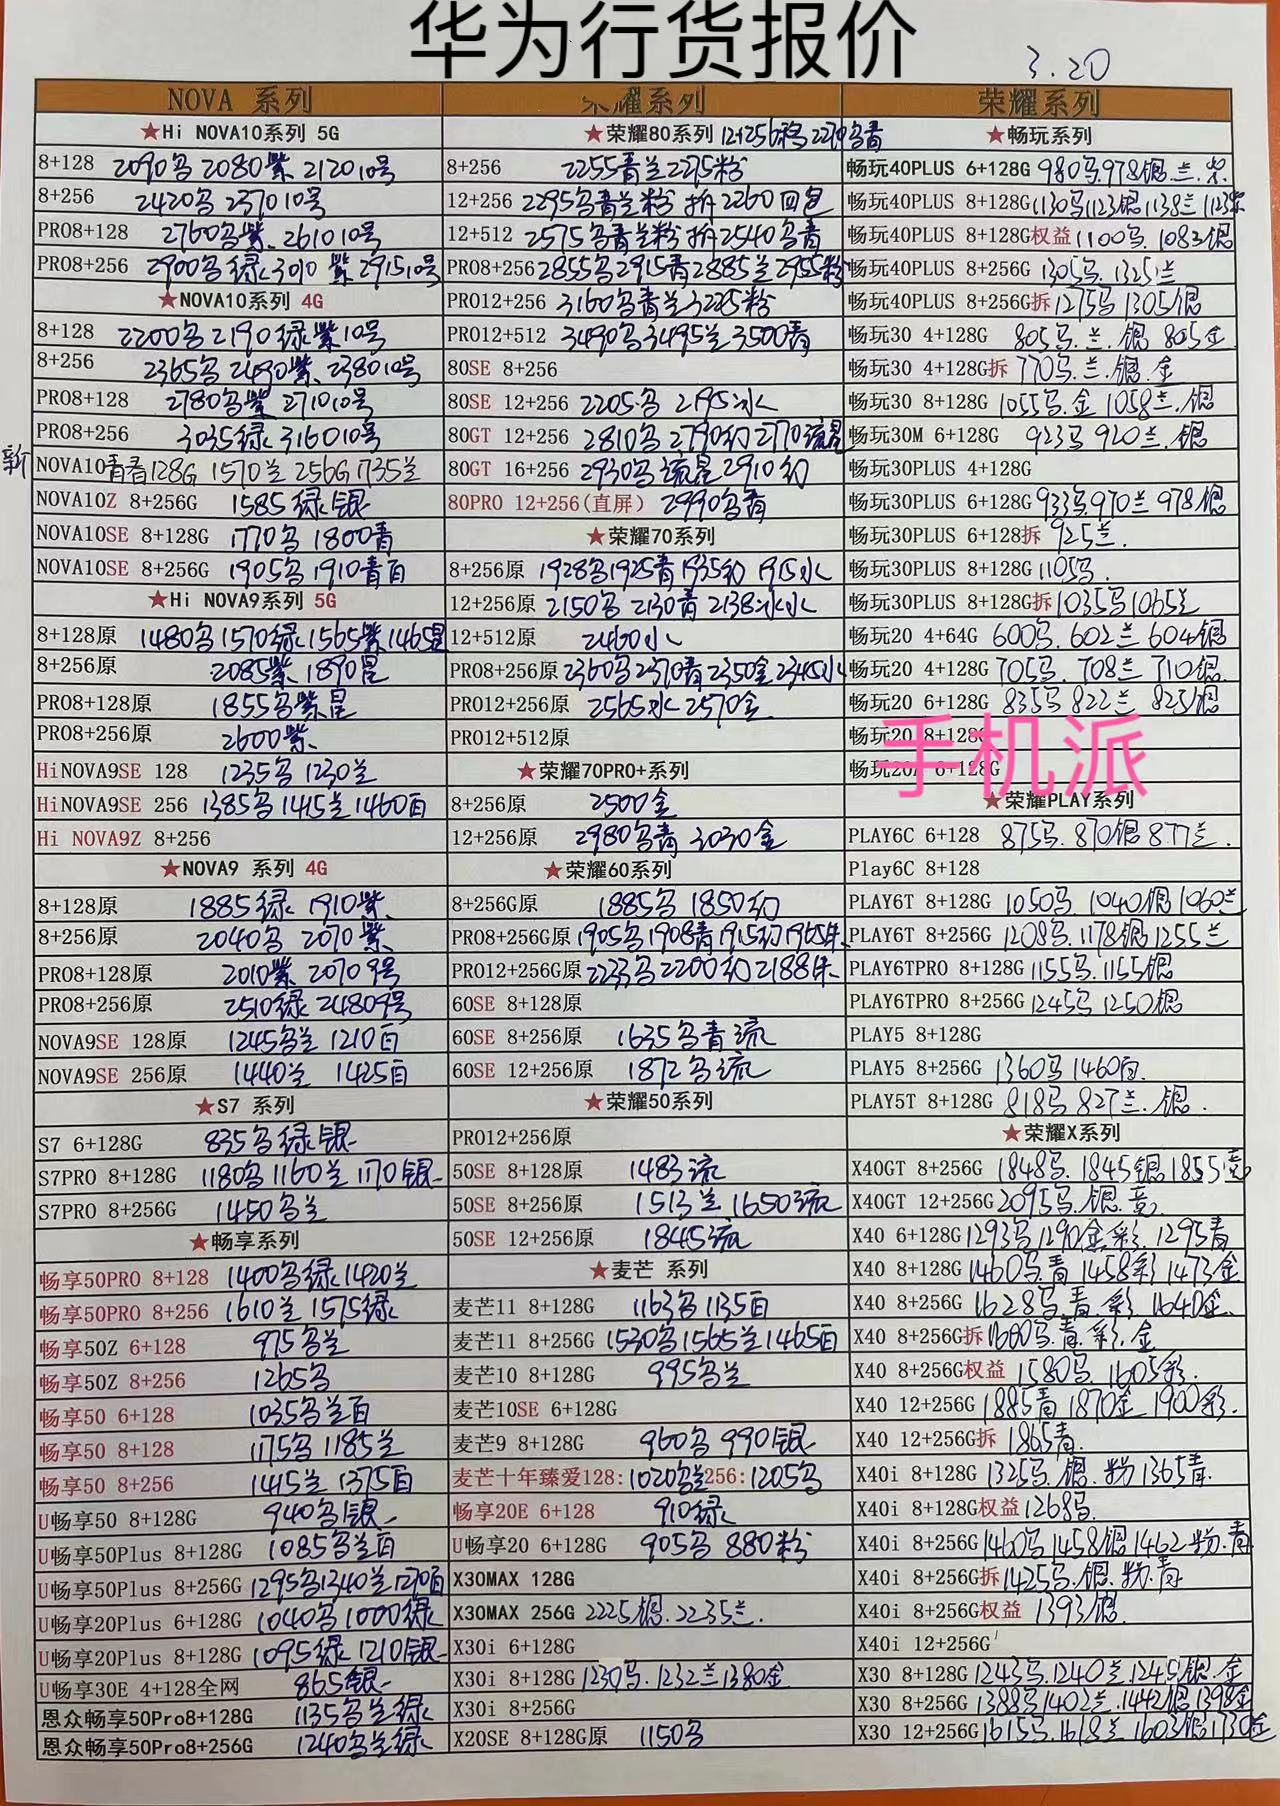 华为行货报价
3.20
NOVA 系列
★Hi NOVA10系列 5G
8+128 2090乌 2080紫 2120 10号
8+256 2420乌 2370 10号
PRO8+128 2760乌紫 2610 10号
PRO8+256 2900乌绿 3010紫 2915 10号
★NOVA10系列 4G
8+128 2200乌 2190绿紫10号
8+256 2365乌 2490紫 2380 10号
PRO8+128 2780乌紫 2710 10号
PRO8+256 3035绿 3160 10号
新 NOVA10青春128G 1570兰 256G 1735兰
NOVA10Z 8+256G 1585绿银
NOVA10SE 8+128G 1770乌 1800青
NOVA10SE 8+256G 1905乌 1910青白
★Hi NOVA9系列 5G
8+128原 1480乌 1570绿 1565紫 1465星
8+256原 2085紫 1890星
PRO8+128原 1855乌紫星
PRO8+256原 2600紫
HiNOVA9SE 128 1235乌 1230兰
HiNOVA9SE 256 1385乌 1415兰 1460白
Hi NOVA9Z 8+256
★NOVA9 系列 4G
8+128原 1885绿 1910紫
8+256原 2040乌 2070紫
PRO8+128原 2010紫 2070 9号
PRO8+256原 2510绿 2480 9号
NOVA9SE 128原 1245乌兰 1210白
NOVA9SE 256原 1440兰 1425白
★S7 系列
S7 6+128G 835乌绿银
S7PRO 8+128G 1180乌 1160兰 1170银
S7PRO 8+256G 1450乌兰
★畅享系列
畅享50PRO 8+128 1400乌绿 1420兰
畅享50PRO 8+256 1610兰 1575绿
畅享50Z 6+128 975乌兰
畅享50Z 8+256 1265乌
畅享50 6+128 1035乌兰白
畅享50 8+128 1175乌 1185兰
畅享50 8+256 1415兰 1375白
U畅享50 8+128G 940乌银
U畅享50Plus 8+128G 1085乌兰白
U畅享50Plus 8+256G 1295乌 1340兰 1270白
U畅享20Plus 6+128G 1040乌 1000绿
U畅享20Plus 8+128G 1095绿 1210银
U畅享30E 4+128全网 865银
恩众畅享50Pro8+128G 1135乌兰绿
恩众畅享50Pro8+256G 1240乌兰绿
荣耀系列
★荣耀80系列 12+256移 2270乌青
8+256 2255青兰 2275粉
12+256 2295乌青兰粉 拆2260回包
12+512 2575乌青兰粉 拆2540乌青
PRO8+256 2855乌 2915青 2885兰 2955粉
PRO12+256 3160乌青兰 3225粉
PRO12+512 3490乌 3495兰 3500青
80SE 8+256
80SE 12+256 2205乌 2195冰
80GT 12+256 2810乌 2790幻 2770流星
80GT 16+256 2930乌流星 2910幻
80PRO 12+256(直屏) 2990乌青
★荣耀70系列
8+256原 1928乌 1925青 1935幻 1915冰
12+256原 2150乌 2130青 2138冰
12+512原 2460冰
PRO8+256原 2360乌 2370青 2350金 2345冰
PRO12+256原 2565冰 2570金
PRO12+512原
★荣耀70PRO+系列
8+256原 2500金
12+256原 2980乌青 3030金
★荣耀60系列
8+256G原 1885乌 1850幻
PRO8+256G原 1905乌 1908青 1915幻 1965朱
PRO12+256G原 2233乌 2200幻 2188朱
60SE 8+128原
60SE 8+256原 1635乌青流
60SE 12+256原 1872乌流
★荣耀50系列
PRO12+256原
50SE 8+128原 1483流
50SE 8+256原 1513兰 1650流
50SE 12+256原 1845流
★麦芒 系列
麦芒11 8+128G 1163乌 1135白
麦芒11 8+256G 1530乌 1565兰 1465白
麦芒10 8+128G 995乌兰
麦芒10SE 6+128G
麦芒9 8+128G 960乌 990银
麦芒十年臻爱128:1020乌兰256:1205乌
畅享20E 6+128 910绿
U畅享20 6+128G 905乌 880粉
X30MAX 128G
X30MAX 256G 2225银.2235兰.
X30i 6+128G
X30i 8+128G 1230乌.1232兰1380金
X30i 8+256G
X20SE 8+128G原 1150乌
荣耀系列
★畅玩系列
畅玩40PLUS 6+128G 980乌.978银.兰.紫
畅玩40PLUS 8+128G 1130乌1123银1138兰1123紫
畅玩40PLUS 8+128G权益1100乌.1083银
畅玩40PLUS 8+256G 1305乌.1325兰
畅玩40PLUS 8+256G拆1275乌1305银
畅玩30 4+128G 805乌.兰.银 805金.
畅玩30 4+128G拆 770乌.兰.银.金
畅玩30 8+128G 1055乌.金 1058兰.银
畅玩30M 6+128G 923乌 920兰.银
畅玩30PLUS 4+128G
畅玩30PLUS 6+128G 933乌 970兰 978银
畅玩30PLUS 6+128拆 925兰.
畅玩30PLUS 8+128G 1105乌.
畅玩30PLUS 8+128G拆 1035乌1065兰
畅玩20 4+64G 600乌.602兰 604银
畅玩20 4+128G 705乌.708兰 710银.
畅玩20 6+128G 835乌 822兰 825银
畅玩20 8+128G
手机派
★荣耀PLAY系列
PLAY6C 6+128 875乌.870银 877兰.
Play6C 8+128
PLAY6T 8+128G 1050乌.1040银 1060兰
PLAY6T 8+256G 1208乌.1178银 1255兰
PLAY6TPRO 8+128G 1155乌.1155银
PLAY6TPRO 8+256G 1245乌 1250银
PLAY5 8+128G
PLAY5 8+256G 1360乌 1460白.
PLAY5T 8+128G 818乌 827兰.银.
★荣耀X系列
X40GT 8+256G 1848乌.1845银 1855竞
X40GT 12+256G 2095乌.银.竞
X40 6+128G 1293乌 1290金.彩.1295青
X40 8+128G 1460乌.青 1458彩 1473金
X40 8+256G 1628乌.青.彩.1640金.
X40 8+256G拆 1600乌.青.彩.金
X40 8+256G权益 1580乌.1605彩.
X40 12+256G 1885青 1870金 1900彩.
X40 12+256G拆 1865青.
X40i 8+128G 1325乌.银.粉 1365青.
X40i 8+128G权益 1268乌.
X40i 8+256G 1460乌 1458银 1462粉.青
X40i 8+256G拆1425乌.银.粉.青
X40i 8+256G权益 1393银.
X40i 12+256G
X30 8+128G 1243乌.1240兰.1245银.金
X30 8+256G 1388乌 1402兰.1442银 1398金
X30 12+256G 1615乌.1618兰 1603银 1730金